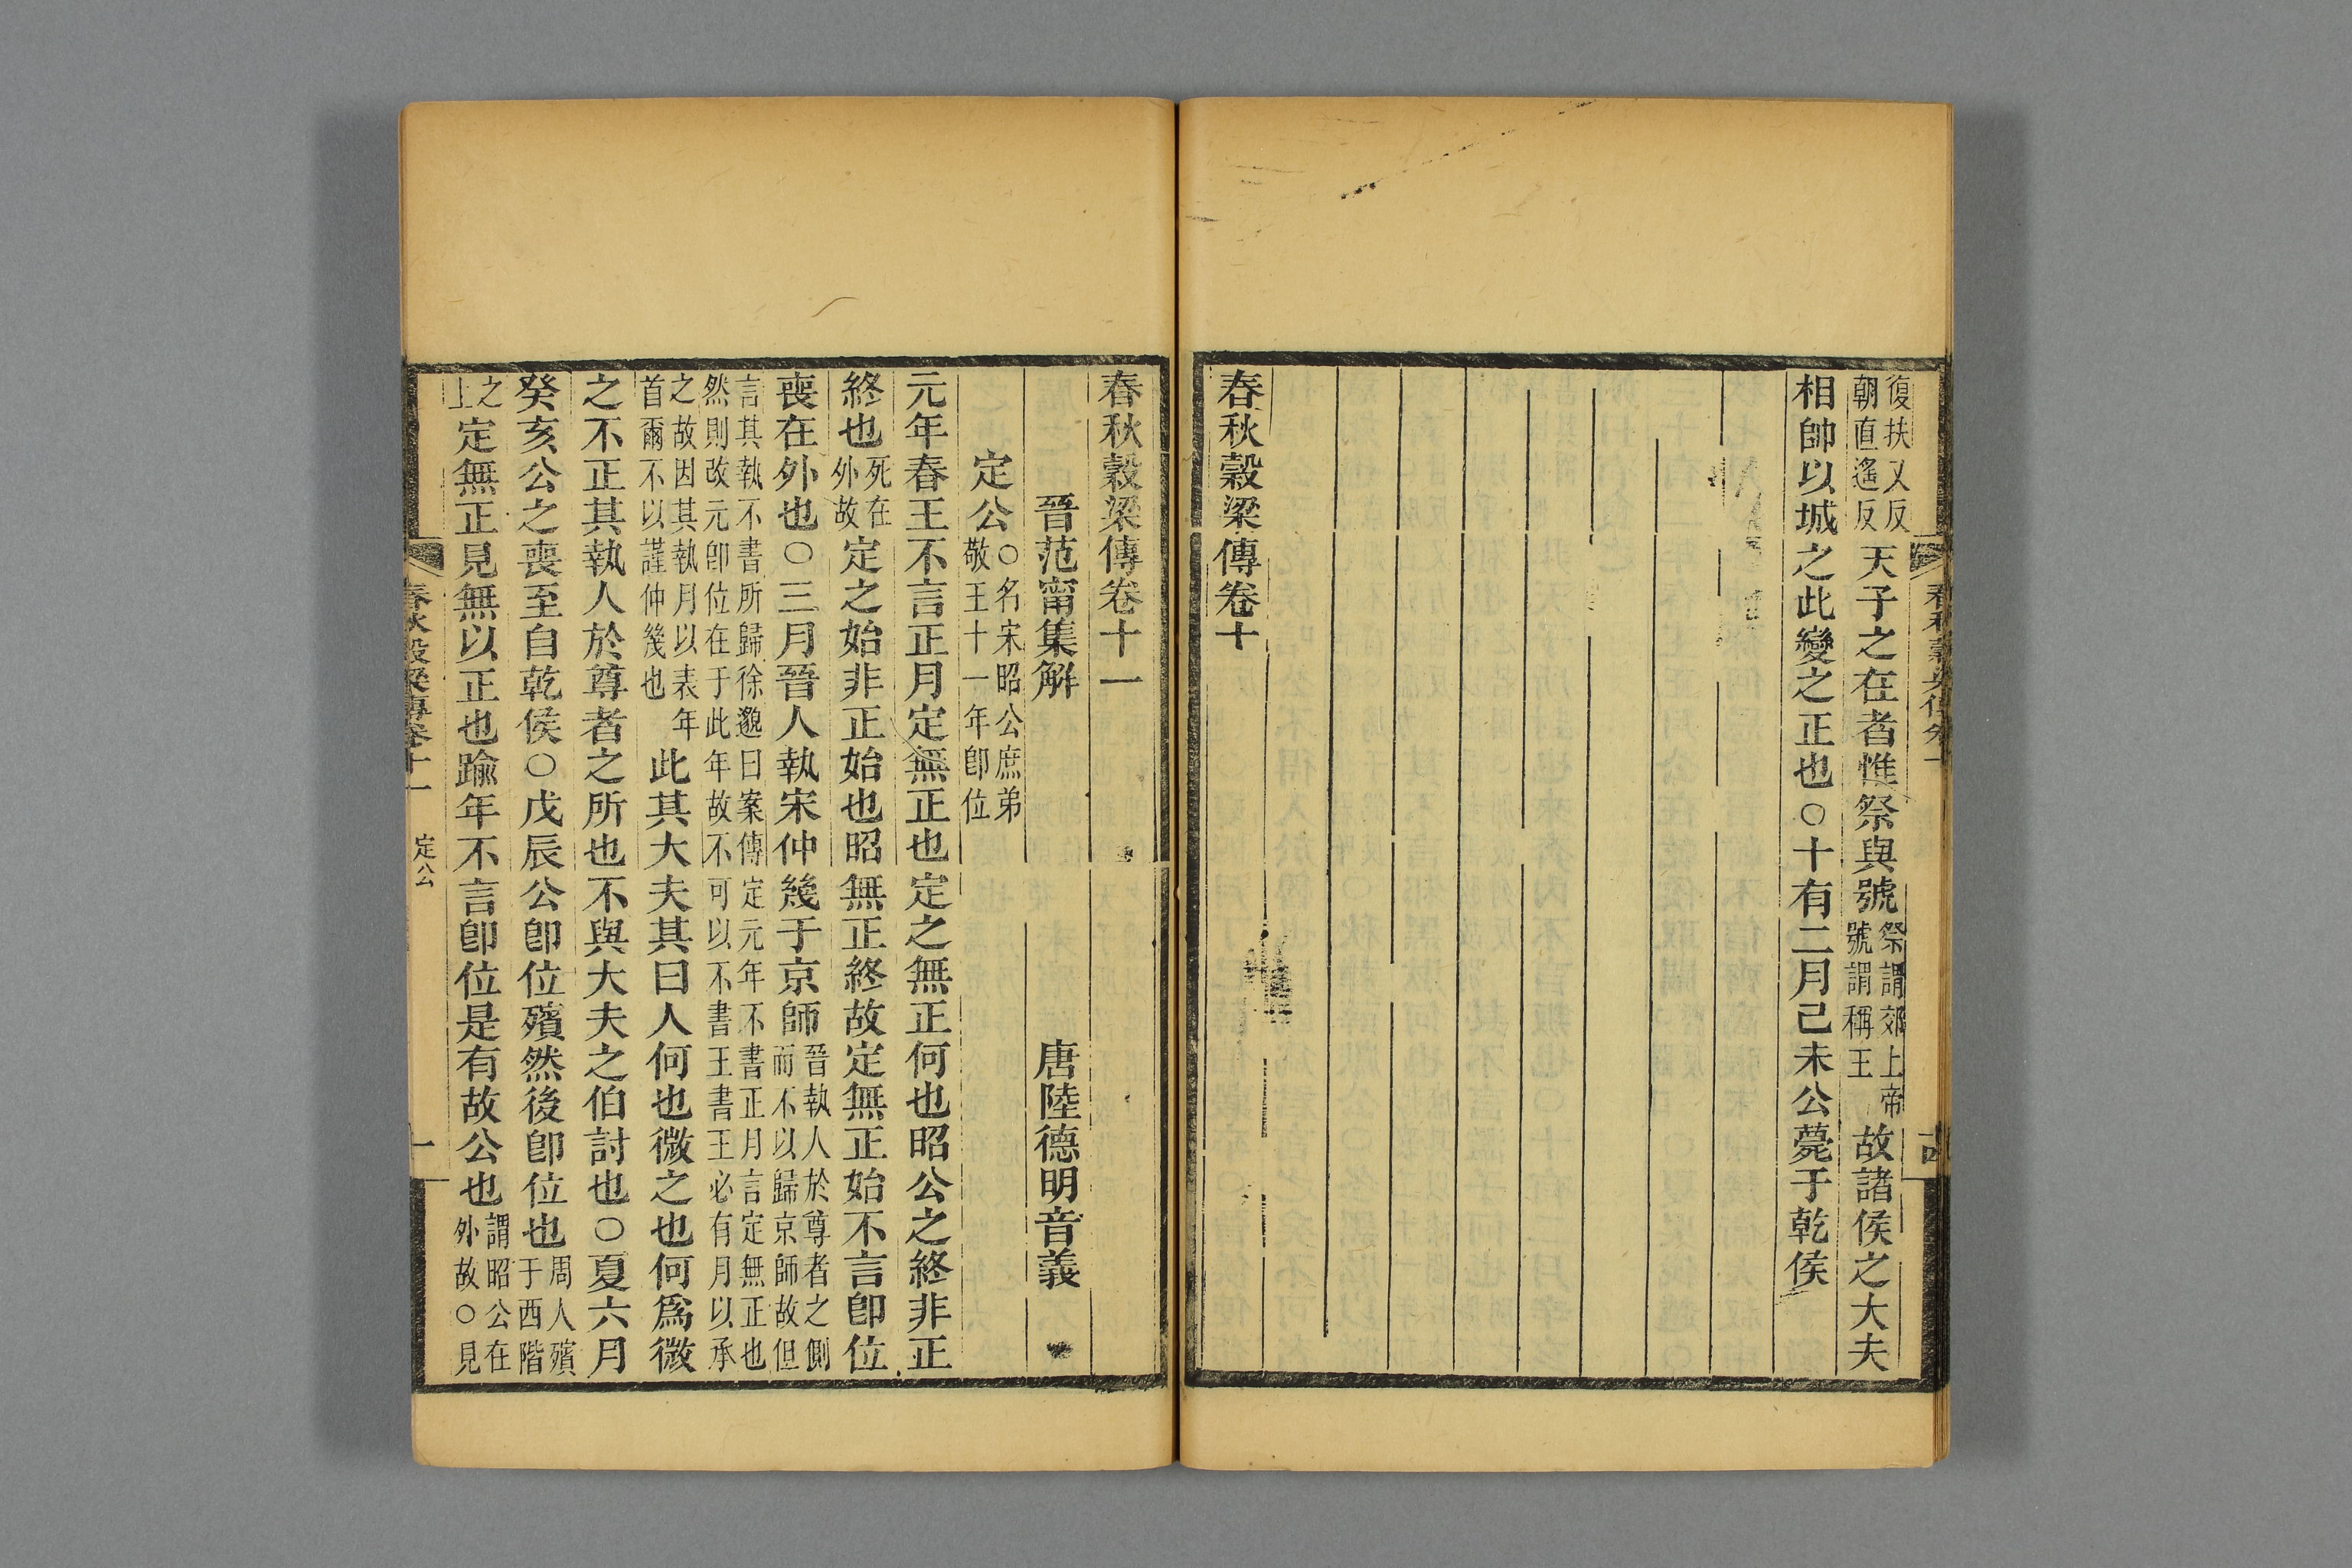 復扶又反朝直遙反天子之在者惟祭與號祭謂郊上帝號謂稱王故諸侯之大夫
相帥以城之此變之正也○十有二月己未公薨于乾侯
春秋穀梁傳卷十
春秋穀梁傳卷十一
晉范甯集解 唐陸德明音義
定公○名宋昭公庶弟敬王十一年卽位
元年春王不言正月定無正也定之無正何也昭公之終非正
終也死在外故定之始非正始也昭無正終故定無正始不言卽位
喪在外也○三月晉人執宋仲幾于京師晉執人於尊者之側而不以歸京師故但
言其執不書所歸徐邈曰案傳定元年不書正月言定無正也然則改元卽位在于此年故不可以不書王書王必有月以承
之故因其執月以表年首爾不以謹仲幾也此其大夫其曰人何也微之也何爲微
之不正其執人於尊者之所也不與大夫之伯討也○夏六月
癸亥公之喪至自乾侯○戊辰公卽位殯然後卽位也周人殯于西階
之上定無正見無以正也踰年不言卽位是有故公也謂昭公在外故○見
春秋穀梁傳卷十一 定公 一